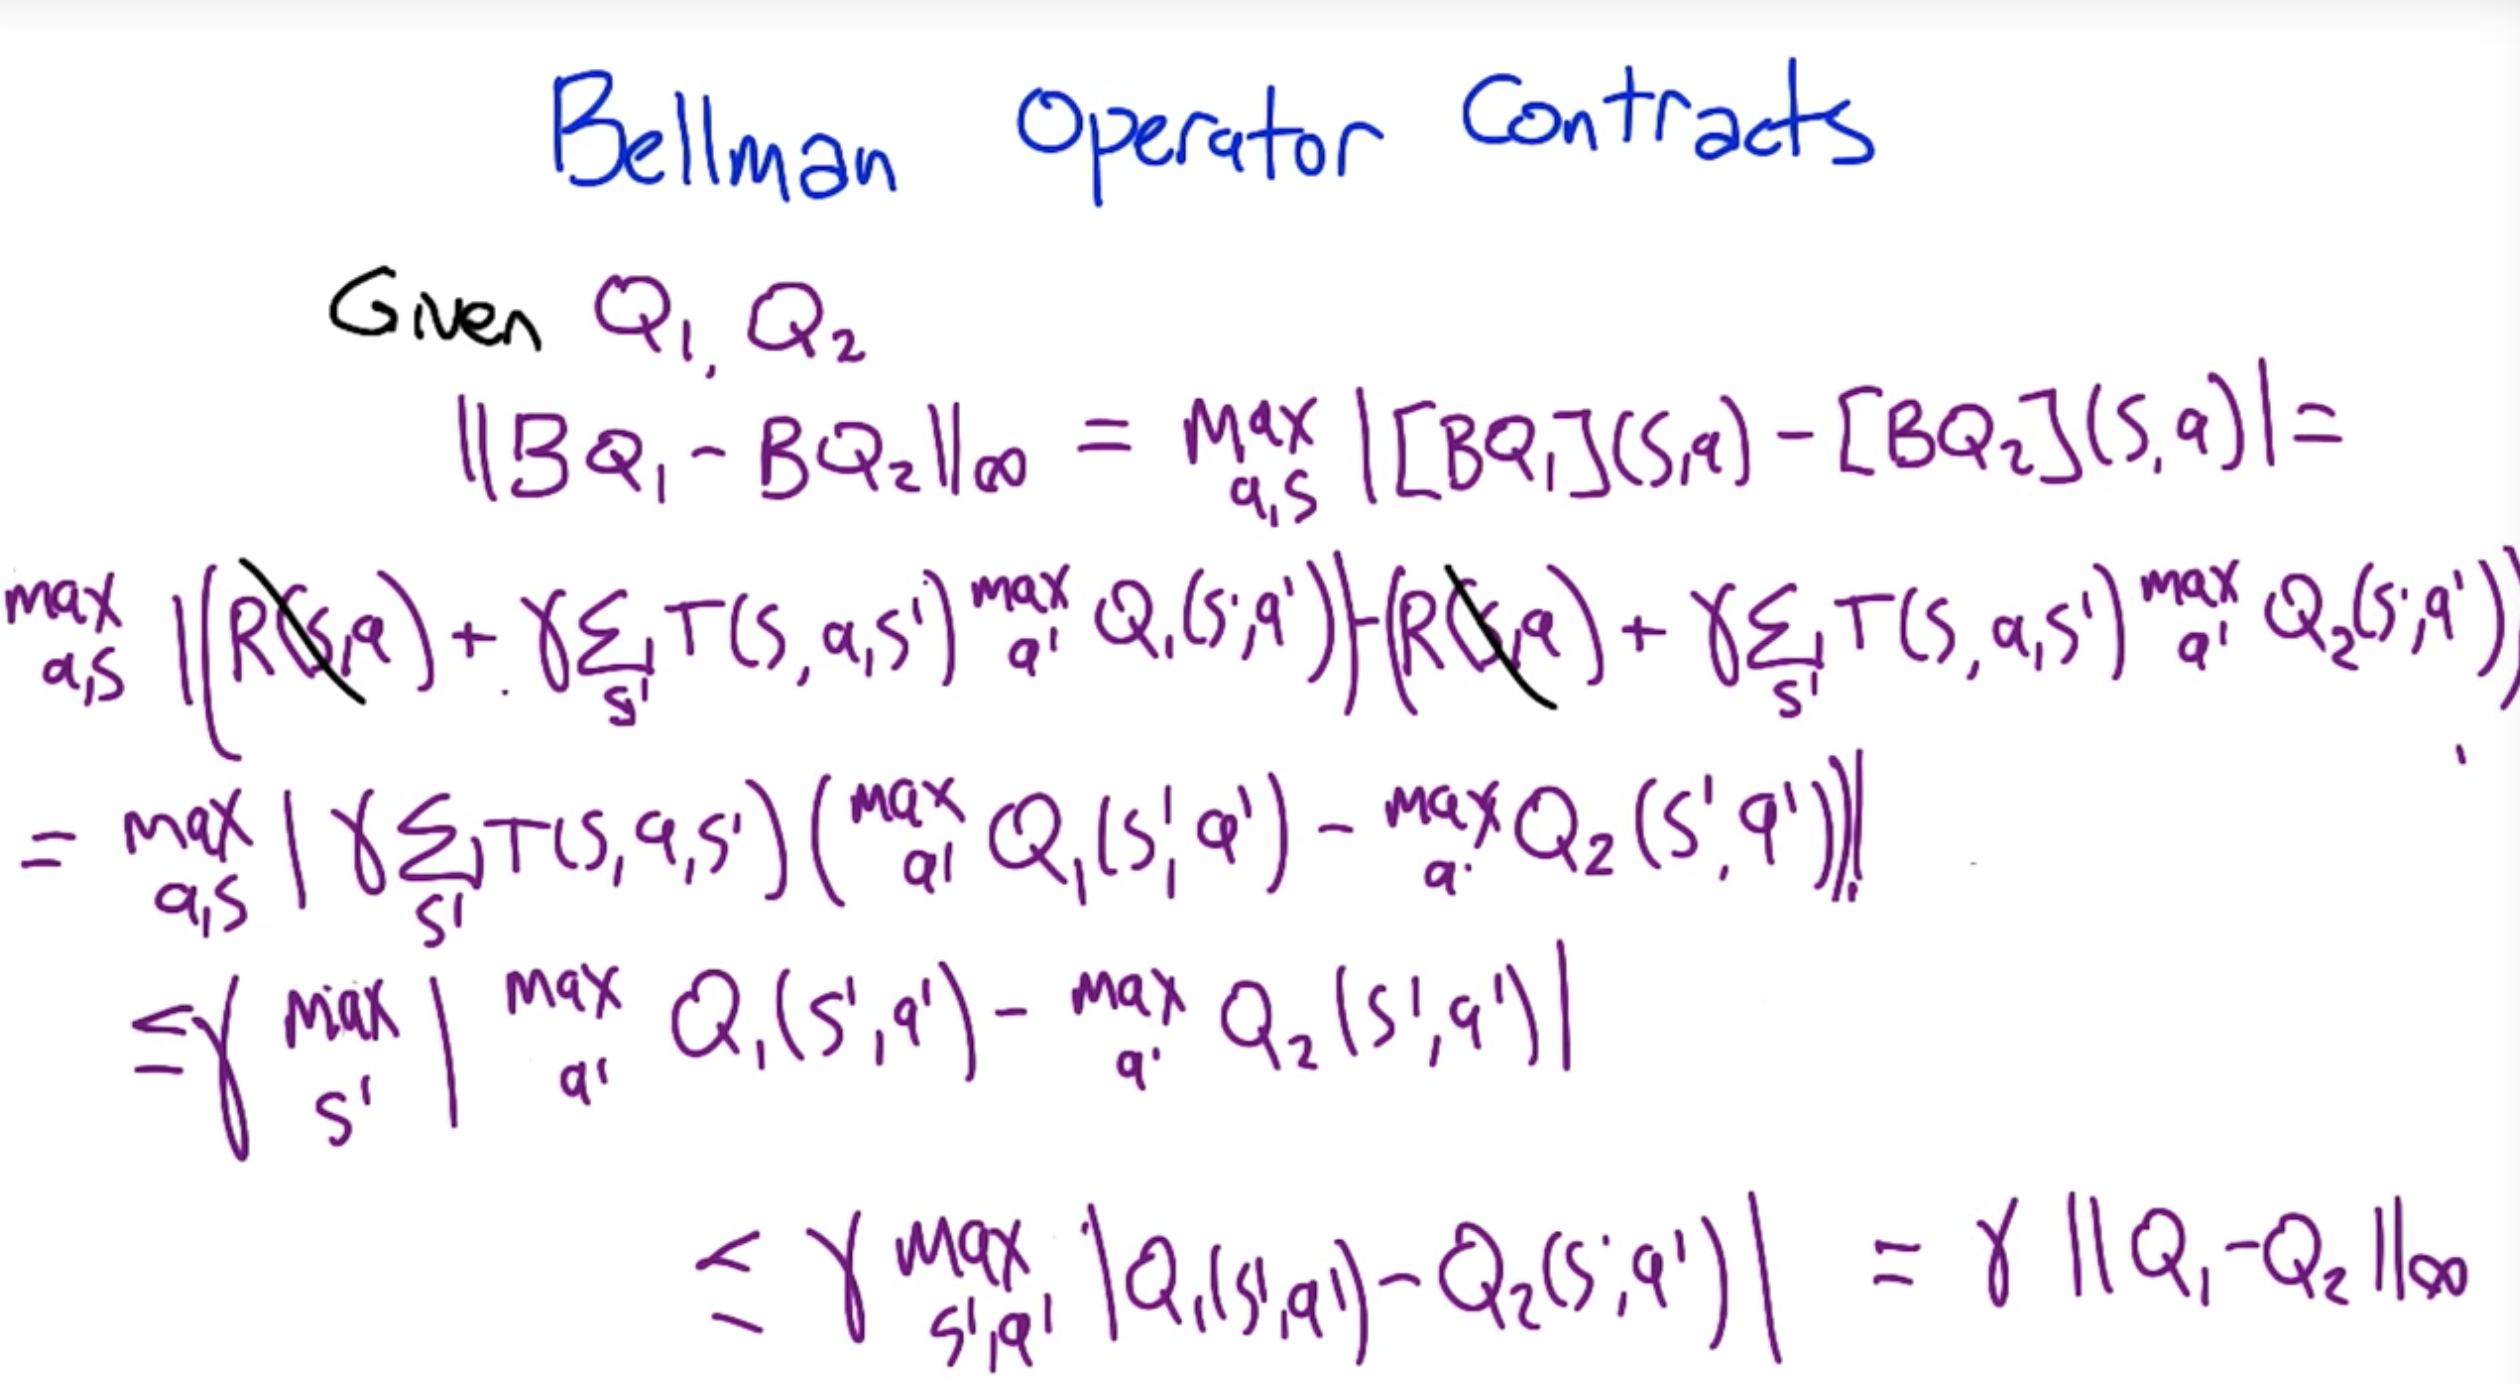 Bellman Operator Contracts
Given Q₁, Q₂
||BQ₁ - BQ₂||∞ = max_{a,s} |[BQ₁](s,a) - [BQ₂](s,a)| =
max_{a,s} |(R(s,a) + γ Σ_{s'} T(s,a,s') max_{a'} Q₁(s',a')) - (R(s,a) + γ Σ_{s'} T(s,a,s') max_{a'} Q₂(s',a'))
= max_{a,s} | γ Σ_{s'} T(s,a,s') (max_{a'} Q₁(s',a') - max_{a'} Q₂(s',a'))|
≤ γ max_{s'} | max_{a'} Q₁(s',a') - max_{a'} Q₂(s',a')|
≤ γ max_{s',a'} |Q₁(s',a') - Q₂(s',a')| = γ ||Q₁-Q₂||∞